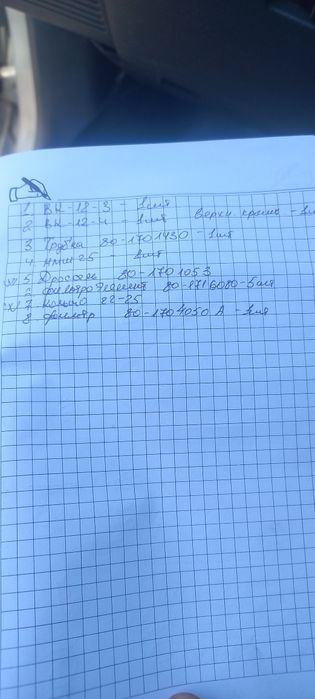 1 ВК-12-3 - 1шт
2 ВК-12-4 - 1шт
3 Трубка 80-1701430 - 1шт
4 НМШ 25 - 1шт
5 Дроссель 80-1701053
6 фильтроэлемент 80-1716080-5шт
7 Кольцо 22-25
8 фильтр 80-1704050 А - 1шт